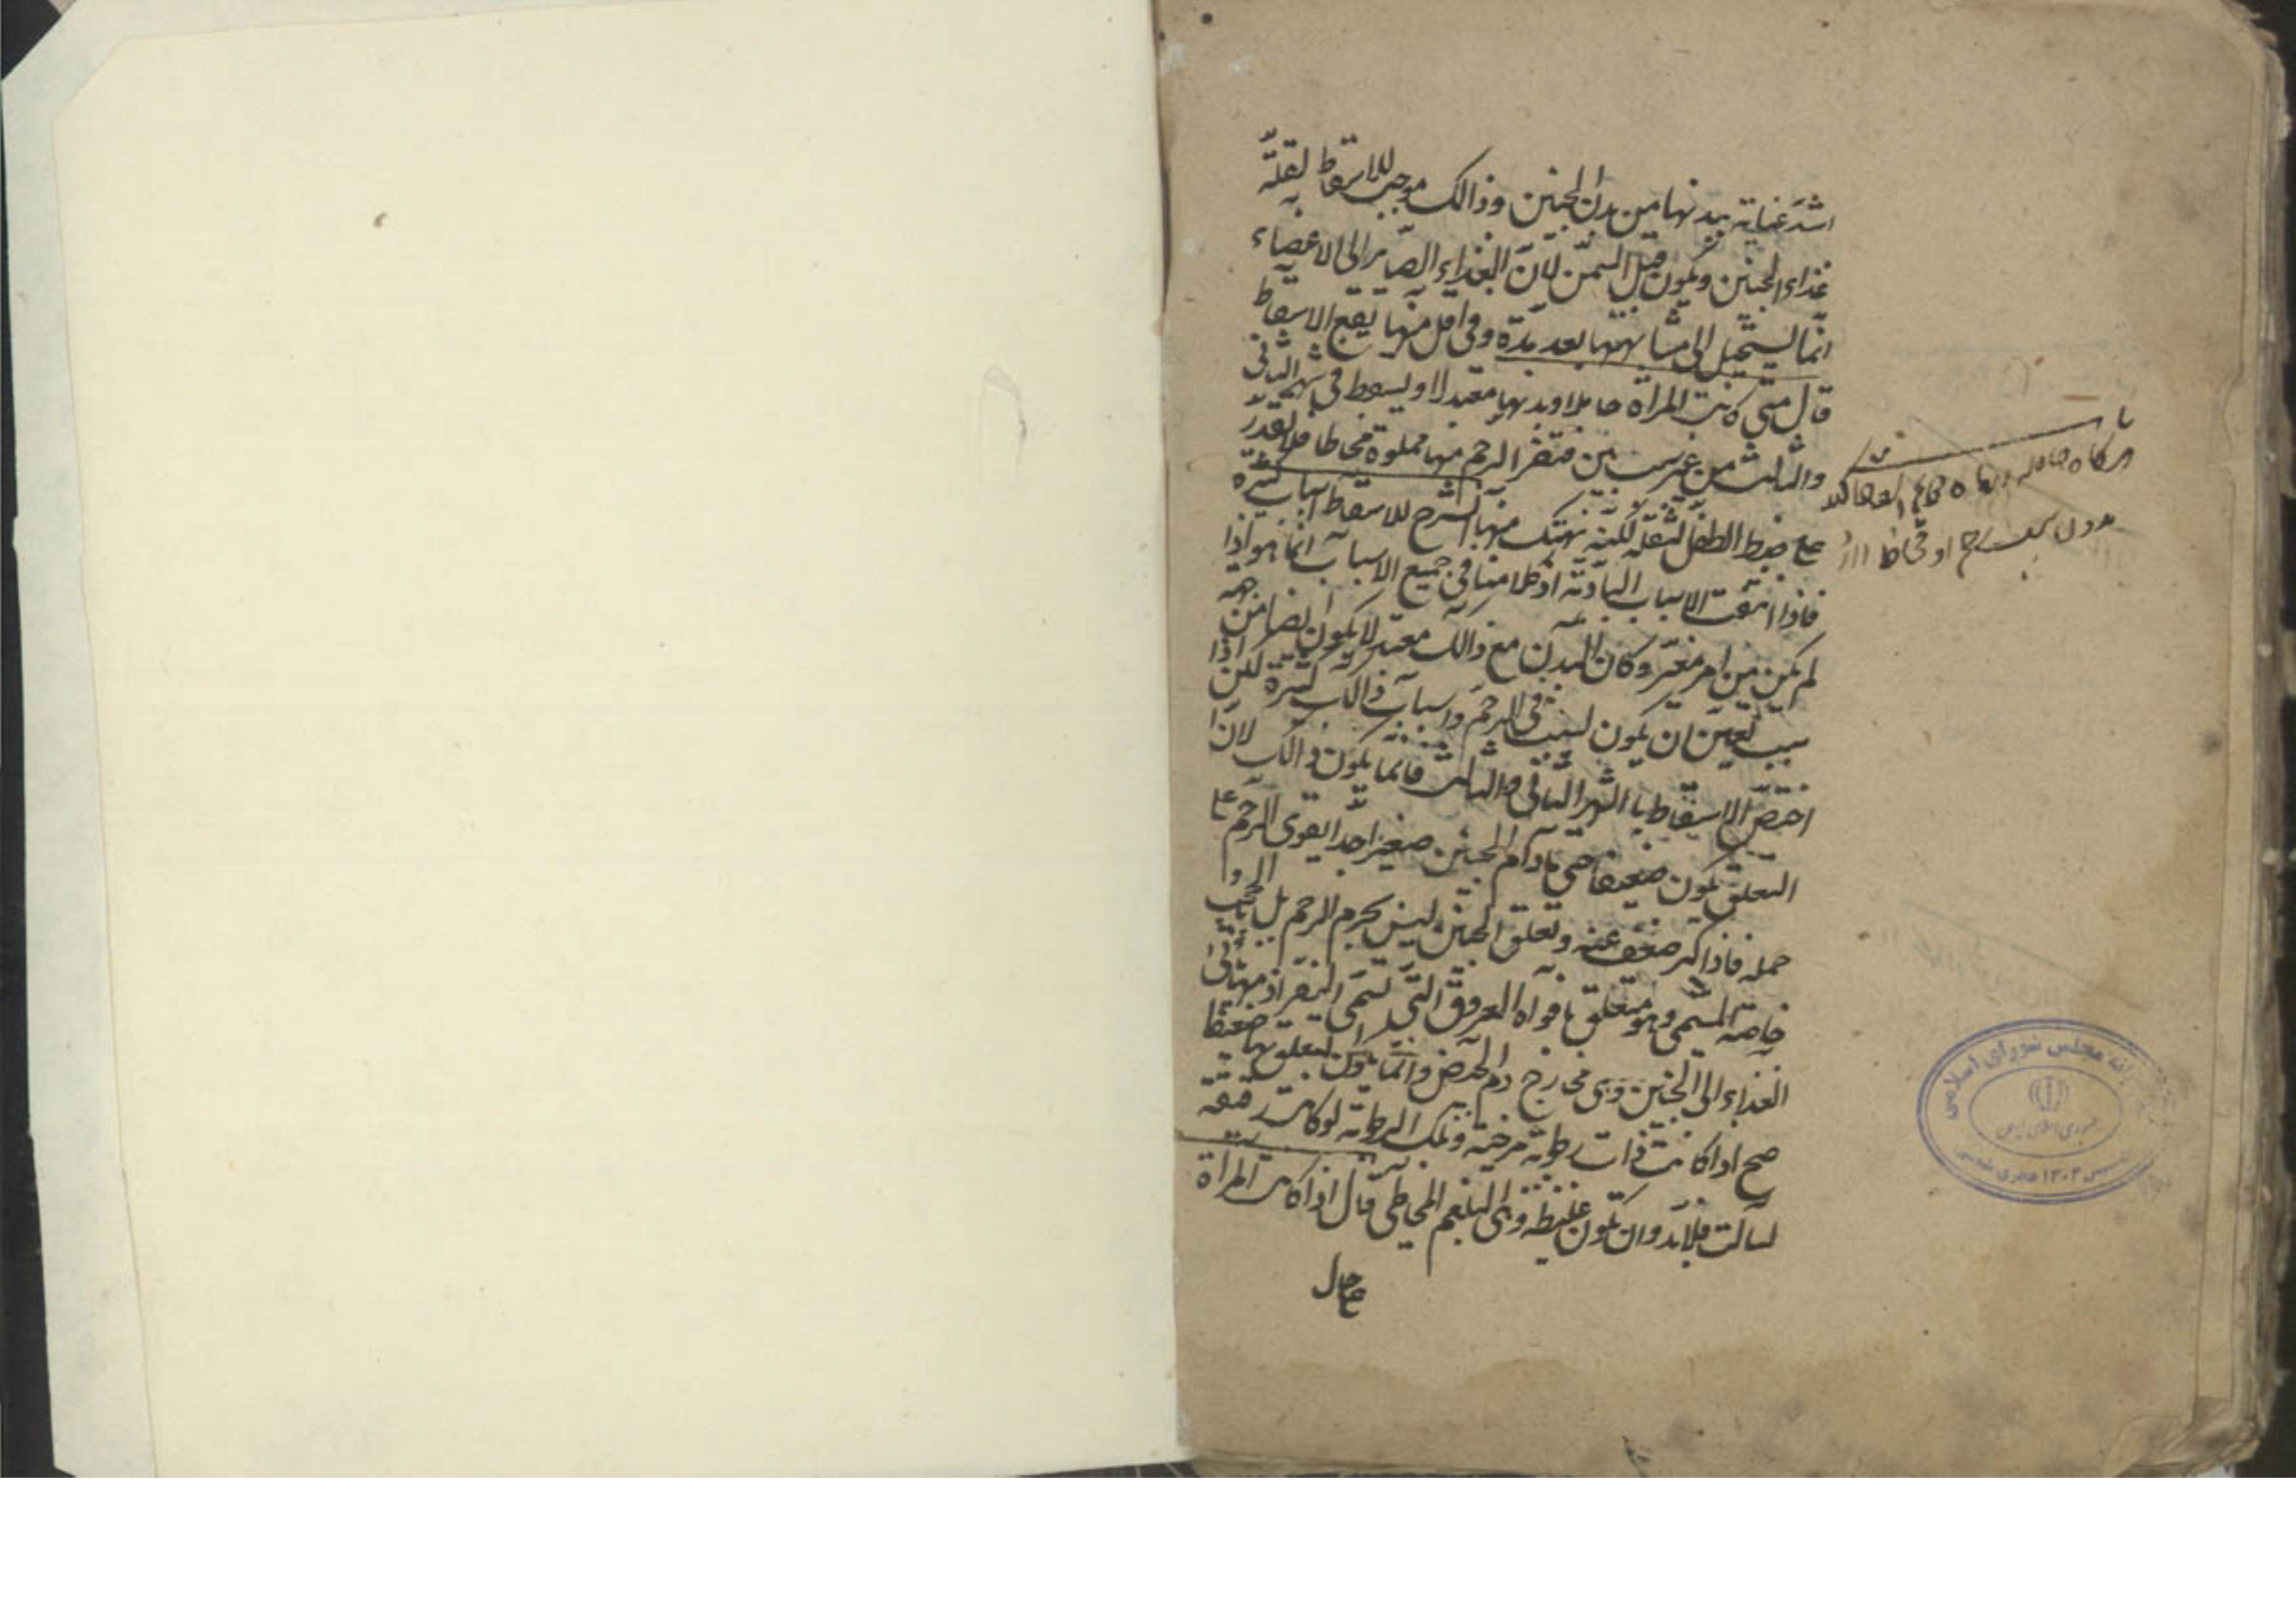 اشد عناية ببدنها من بدن الجنين وذالك موجب للاسقاط لقلة
غذاء الجنين ويكون قبل السمن لان الغذاء الصائر الى الاعضاء
انما يستحيل الى مشابهتها بعد مدة وفى اقل منها يقع الاسقاط
قال متى كانت المراة حاملا وبدنها معتدلا ويسقط فى شهر الثانى
والثالث من غير سبب بين فنقر الرحم منها مملوة مخاطا فلا تقدر
على ضبط الطفل لثقله لكنه ينهتك منها الشرح للاسقاط اسباب كثيرة
فاذا انتفت الاسباب البادية اذ كلامنا فى جميع الاسباب انما هو اذا
لم يكن من امر مغير وكان البدن مع ذالك معتدلا يكون ايضا من جهة
سبب تعين ان يكون لسبب فى الرحم واسباب ذالك كثيرة لكن اذا
اختص الاسقاط باالشهر الثانى والثالث فانما يكون ذالك لان
التعلق يكون ضعيفا حتى مادام الجنين صغيرا جدا يقوى الرحم على
حمله فاذا كبر ضعف عنه وتعلق الجنين ليس بجرم الرحم بل بحجب
خاصة المسمى وهو متعلق بافواه العروق التى تسمى النقر اذ منها ياتى
الغذاء الى الجنين وهى مخارج دم الحيض وانما يكون التعلق بها ضعيفا
صح اذا كانت ذات رطوبة مرخية وتلك الرطوبة لو كانت رقيقة
لسالت فلابد وان تكون غليظة وهى البلغم المخاطى قال اذا كانت المراة
على حال
هركاه حامله
بدون سبب رحم او مخاط دارد
كتابخانه مجلس شوراى اسلامى
جمهورى اسلامى ايران
تاسيس ۱۳۰۲ هجرى شمسى